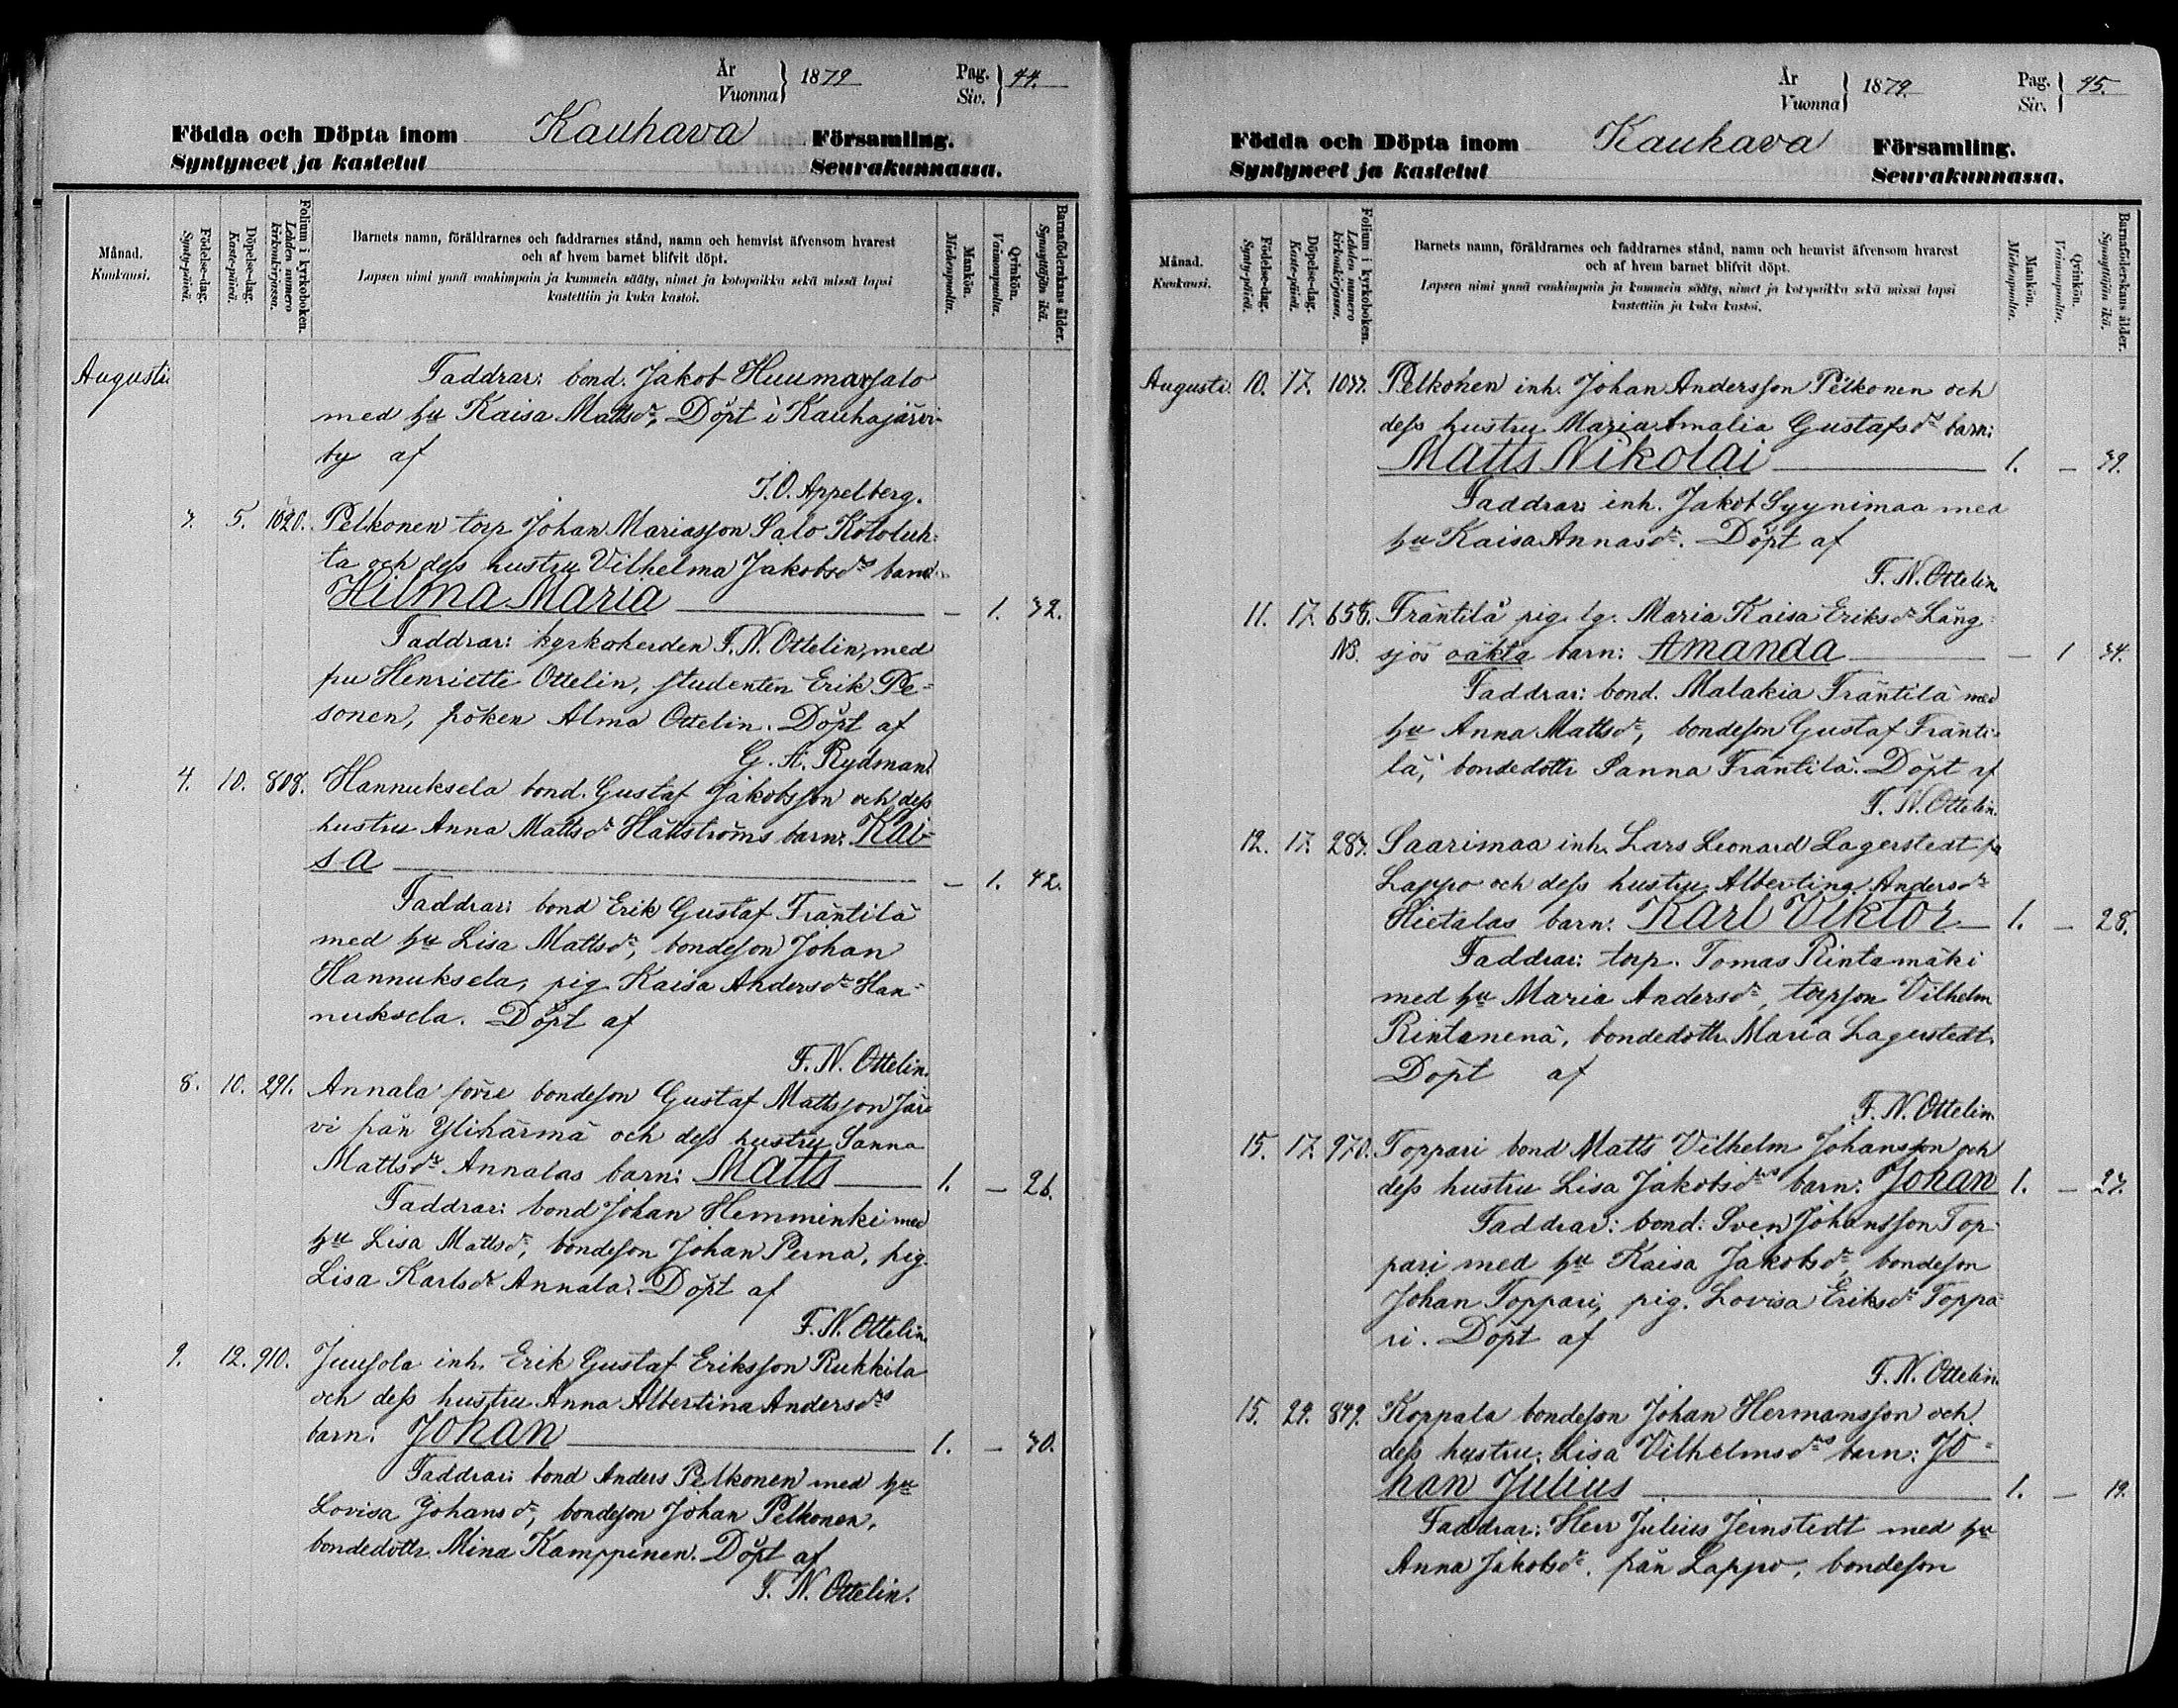 År
Vuonna } 1879
Pag.
Siv. } 44.
Födda och Döpta inom Kauhava Församling.
Syntyneet ja kastetut Seurakunnassa.
Månad.
Kuukausi.
Födelse-dag.
Synty-päivä.
Döpelse-dag.
Kaste-päivä.
Folium i kyrkoboken.
Lehden numero
kirkonkirjassa.
Barnets namn, föräldrarnes och faddrarnes stånd, namn och hemvist äfvensom hvarest
och af hvem barnet blifvit döpt.
Lapsen nimi ynnä vanhimpain ja kummein sääty, nimet ja kotopaikka sekä missä lapsi
kastettiin ja kuka kastoi.
Mankön.
Miehenpuolta.
Qvinkön.
Vaimonpuolta.
Barnaföderskans ålder.
Synnyttäjän ikä.
Augusti Faddrar: bond. Jakob Huumarsalo
med hu Kaisa Mattsdr. Döpt i Kauhajärvi
by af
I. O. Appelberg.
3. 5. 1020. Pelkonen torp Johan Mariasson Salo Kotoluh-
ta och dess hustru Vilhelma Jakobsdrs barn
Hilma Maria — 1. 32.
Faddrar: kyrkoherden F. N. Ottelin, med
fru Henriette Ottelin, studenten Erik Pe-
sonen, fröken Alma Ottelin. Döpt af
G. A. Rydman.
4. 10. 808. Hannuksela bond. Gustaf Jakobsson och dess
hustru Anna Mattsdr Hättströms barn: Kai-
sa — 1. 42.
Faddrar: bond Erik Gustaf Fräntilä
med hu Lisa Mattsdr, bondeson Johan
Hannuksela, pig. Kaisa Andersdr Han-
nuksela. Döpt af
F. N. Ottelin.
8. 10. 291. Annala förre bondeson Gustaf Mattsson Jär-
vi från Ylihärmä och dess hustru Sanna
Mattsdr Annalas barn: Matts 1. — 26.
Faddrar: bond Johan Hemminki med
hu Lisa Mattsdr, bondeson Johan Perna, pig.
Lisa Karlsdr Annala. Döpt af
F. N. Ottelin.
9. 12. 910. Juusola inh. Erik Gustaf Eriksson Rukkila
och dess hustru Anna Albertina Andersdrs
barn: Johan 1. — 30.
Faddrar: bond Anders Pelkonen med hu
Lovisa Johansdr, bondeson Johan Pelkonen,
bondedottr. Mina Kamppinen. Döpt af
F. N. Ottelin.
År
Vuonna } 1879.
Pag.
Siv. } 45.
Födda och Döpta inom Kauhava Församling.
Syntyneet ja kastetut Seurakunnassa.
Månad.
Kuukausi.
Födelse-dag.
Synty-päivä.
Döpelse-dag.
Kaste-päivä.
Folium i kyrkoboken.
Lehden numero
kirkonkirjassa.
Barnets namn, föräldrarnes och faddrarnes stånd, namn och hemvist äfvensom hvarest
och af hvem barnet blifvit döpt.
Lapsen nimi ynnä vanhimpain ja kummein sääty, nimet ja kotopaikka sekä missä lapsi
kastettiin ja kuka kastoi.
Mankön.
Miehenpuolta.
Qvinkön.
Vaimonpuolta.
Barnaföderskans ålder.
Synnyttäjän ikä.
Augusti. 10. 17. Pelkonen inh. Johan Andersson Pelkonen och
dess hustru Maria Amalia Gustafsdrs barn:
Matts Nikolai 1. — 39.
Faddrar: inh. Jakob Syynimaa med
hu Kaisa Annasdr. Döpt af
F. N. Ottelin
11. 17. 658. Fräntilä pig. lg. Maria Kaisa Eriksdr Lång-
NB. sjös oäkta barn: Amanda — 1 34.
Faddrar: bond. Malakia Fräntilä med
hu Anna Mattsdr, bondeson Gustaf Fränti-
lä, bondedottr Sanna Fräntilä. Döpt af
F. N. Ottelin.
12. 17. 283. Saarimaa inh. Lars Leonard Lagerstedt fr
Lappo och dess hustru Albertina Andersdr
Hietalas barn: Karl Viktor 1. — 28.
Faddrar: torp. Tomas Rintamäki
med hu Maria Andersdr, torpson Vilhelm
Rintanenä, bondedottr. Maria Lagerstedt.
Döpt af
F. N. Ottelin.
15. 17. 970. Toppari bond Matts Vilhelm Johansson och
dess hustru Lisa Jakobsdrs barn: Johan 1. — 27.
Faddrar: bond: Sven Johansson Top-
pari med hu Kaisa Jakobsdr, bondeson
Johan Toppari, pig. Lovisa Eriksdr Toppa-
ri. Döpt af
F. N. Ottelin.
15. 24. 849. Koppala bondeson Johan Hermansson och
dess hustru Lisa Vilhelmsdrs barn: Jo-
han Julius 1. — 19.
Faddrar: Herr Julius Jernstedt med hu
Anna Jakobsdr. från Lappo, bondeson